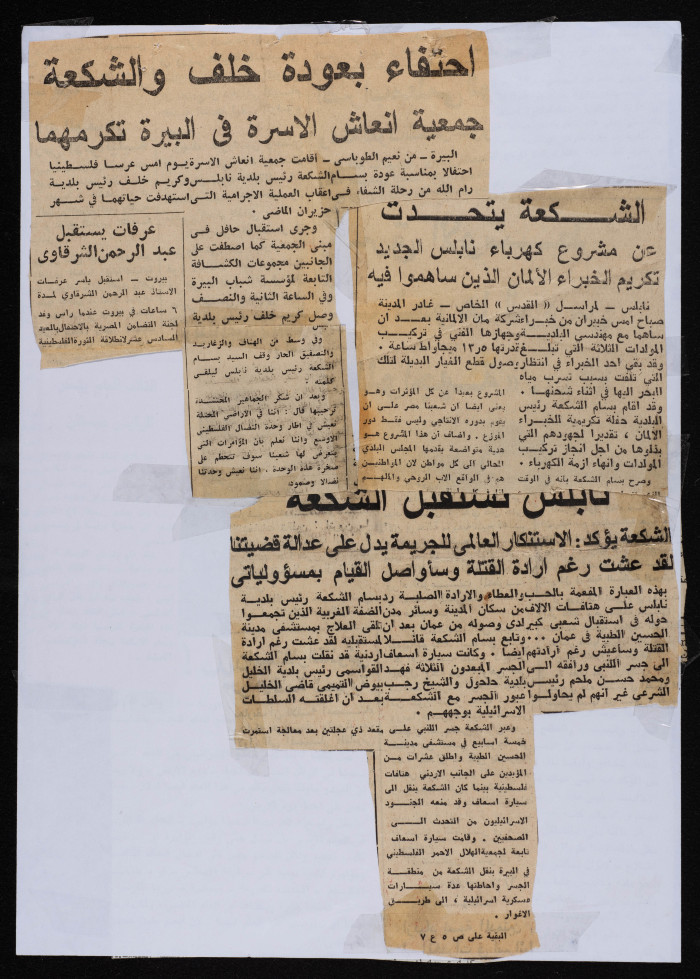 احتفاء بعودة خلف والشكعة
جمعية انعاش الاسرة في البيرة تكرمهما
البيرة – من نعيم الطوباسي – أقامت جمعية انعاش الاسرة يوم امس عرسا فلسطينيا
احتفالا بمناسبة عودة بسام الشكعة رئيس بلدية نابلس وكريم خلف رئيس بلدية
رام الله من رحلة الشفاء في اعقاب العملية الاجرامية التي استهدفت حياتهما في شهر
حزيران الماضي .
وجرى استقبال حافل في
مبنى الجمعية كما اصطفت على
الجانبين مجموعات الكشافة
التابعة لمؤسسة شباب البيرة
وفي الساعة الثانية والنصف
وصل كريم خلف رئيس بلدية
وفي وسط من الهتاف والزغاريد
والتصفيق الحار وقف السيد بسام
الشكعة رئيس بلدية نابلس ليلقي
كلمته :
وبعد ان شكر الجماهير المحتشدة
ترحيبها قال : اننا في الاراضي المحتلة
نعيش في اطار وحدة النضال الفلسطيني
الاوسع واننا نعلم بأن المؤامرات التي
يتعرض لها شعبنا سوف تتحطم على
صخرة هذه الوحدة . اننا نعيش وحدتنا
نضالا وصمود
عرفات يستقبل
عبد الرحمن الشرقاوي
بيروت – استقبل ياسر عرفات
الاستاذ عبد الرحمن الشرقاوي لمدة
٦ ساعات في بيروت عندما راس وفد
لجنة التضامن المصرية بالاحتفال بالعيد
السادس عشر لانطلاقة الثورة الفلسطينية
الشكعة يتحدث
عن مشروع كهرباء نابلس الجديد
تكريم الخبراء الألمان الذين ساهموا فيه
نابلس – لمراسل « القدس » الخاص – غادر المدينة
صباح امس خبيران من خبراء شركة مان الالمانية بعد ان
ساهما مع مهندسي البلدية وجهازها الفني في تركيب
المولدات الثلاثة التي تبلغ قدرتها ١٣٫٥ ميجاواط ساعة .
وقد بقي احد الخبراء في انتظار وصول قطع الغيار البديلة لتلك
التي تلفت بسبب تسرب مياه
البحر اليها في اثناء شحنها .
وقد اقام بسام الشكعة رئيس
البلدية حفلة تكريمية للخبراء
الالمان ، تقديرا لجهودهم التي
بذلوها من اجل انجاز تركيب
المولدات وانهاء ازمة الكهرباء .
وصرح بسام الشكعة بانه في الوقت
المشروع بعيدا عن كل المؤثرات وهو
يعني ايضا ان شعبنا مصر على ان
يقوم بدوره الانتاجي وليس فقط دور
الموزع . واضاف أن هذا المشروع هو
هدية متواضعة يقدمها المجلس البلدي
الحالي الى كل مواطن لان المواطنين
هم في الواقع الاب الروحي والملهم
نابلس تستقبل الشكعة
الشكعة يؤكد : الاستنكار العالمي للجريمة يدل على عدالة قضيتنا
لقد عشت رغم ارادة القتلة وسأواصل القيام بمسؤولياتي
بهذه العبارة المفعمة بالحب والعطاء والارادة الصلبة رد بسام الشكعة رئيس بلدية
نابلس على هتافات الالاف من سكان المدينة وسائر مدن الضفة الغربية الذين تجمعوا
حوله في استقبال شعبي كبير لدى وصوله من عمان بعد ان تلقى العلاج بمستشفى مدينة
الحسين الطبية في عمان ... وتابع بسام الشكعة قائلا لمستقبليه لقد عشت رغم ارادة
القتلة وساعيش رغم أرادتهم ايضا . وكانت سيارة اسعاف اردنية قد نقلت بسام الشكعة
الى جسر اللنبي ورافقه الى الجسر المبعدون الثلاثة فهد القواسمي رئيس بلدية الخليل
ومحمد حسن ملحم رئيس بلدية حلحول والشيخ رجب بيوض التميمي قاضي الخليل
الشرعي غير انهم لم يحاولوا عبور الجسر مع الشكعة بعد ان اغلقته السلطات
الاسرائيلية بوجههم .
وعبر الشكعة جسر اللنبي على مقعد ذي عجلتين بعد معالجة استمرت
خمسة اسابيع في مستشفى مدينة
الحسين الطبية واطلق عشرات من
المؤيدين على الجانب الاردني هتافات
فلسطينية بينما كان الشكعة ينقل الى
سيارة اسعاف وقد منعه الجنود
الاسرائيليون من التحدث الى
الصحفيين . وقامت سيارة اسعاف
تابعة لجمعية الهلال الاحمر الفلسطيني
في البيرة بنقل الشكعة من منطقة
الجسر واحاطتها عدة سيارات
عسكرية اسرائيلية ، الى طريق
الاغوار .
البقية على ص ٥ ع ٧